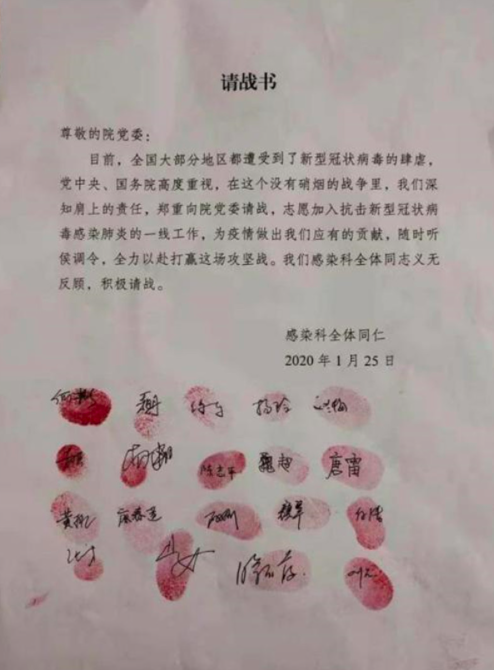 请战书
尊敬的院党委：
目前，全国大部分地区都遭受到了新型冠状病毒的肆虐，
党中央、国务院高度重视，在这个没有硝烟的战争里，我们深
知肩上的责任，郑重向院党委请战，志愿加入抗击新型冠状病
毒感染肺炎的一线工作，为疫情做出我们应有的贡献，随时听
侯调令，全力以赴打赢这场攻坚战。我们感染科全体同志义无
反顾，积极请战。
感染科全体同仁
2020 年 1 月 25 日
杨玲
唐雷